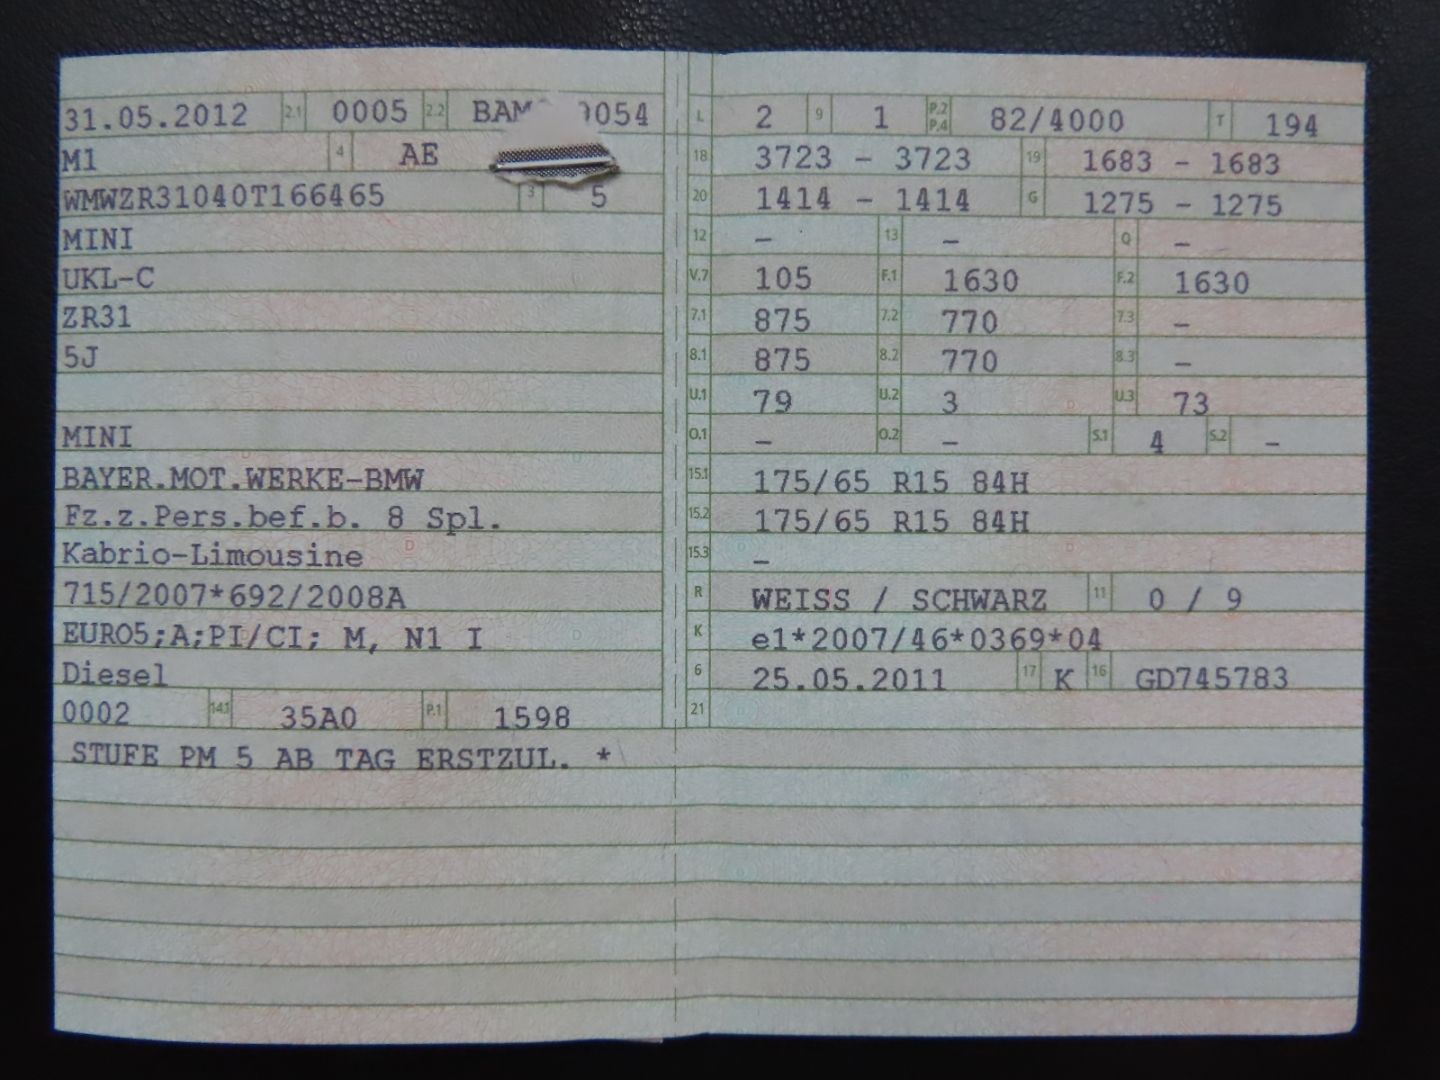 31.05.2012 2.1 0005 2.2 BAM 0054
M1 4 AE
WMWZR31040T166465 3 5
MINI
UKL-C
ZR31
5J
MINI
BAYER.MOT.WERKE-BMW
Fz.z.Pers.bef.b. 8 Spl.
Kabrio-Limousine
715/2007*692/2008A
EURO5;A;PI/CI; M, N1 I
Diesel
0002 14.1 35A0 P.1 1598
STUFE PM 5 AB TAG ERSTZUL. *
L 2 9 1 P.2 P.4 82/4000 T 194
18 3723 - 3723 19 1683 - 1683
20 1414 - 1414 G 1275 - 1275
12 - 13 - Q -
V.7 105 F.1 1630 F.2 1630
7.1 875 7.2 770 7.3 -
8.1 875 8.2 770 8.3 -
U.1 79 U.2 3 U.3 73
O.1 - O.2 - S.1 4 S.2 -
15.1 175/65 R15 84H
15.2 175/65 R15 84H
15.3 -
R WEISS / SCHWARZ 11 0 / 9
K e1*2007/46*0369*04
6 25.05.2011 17 K 16 GD745783
21